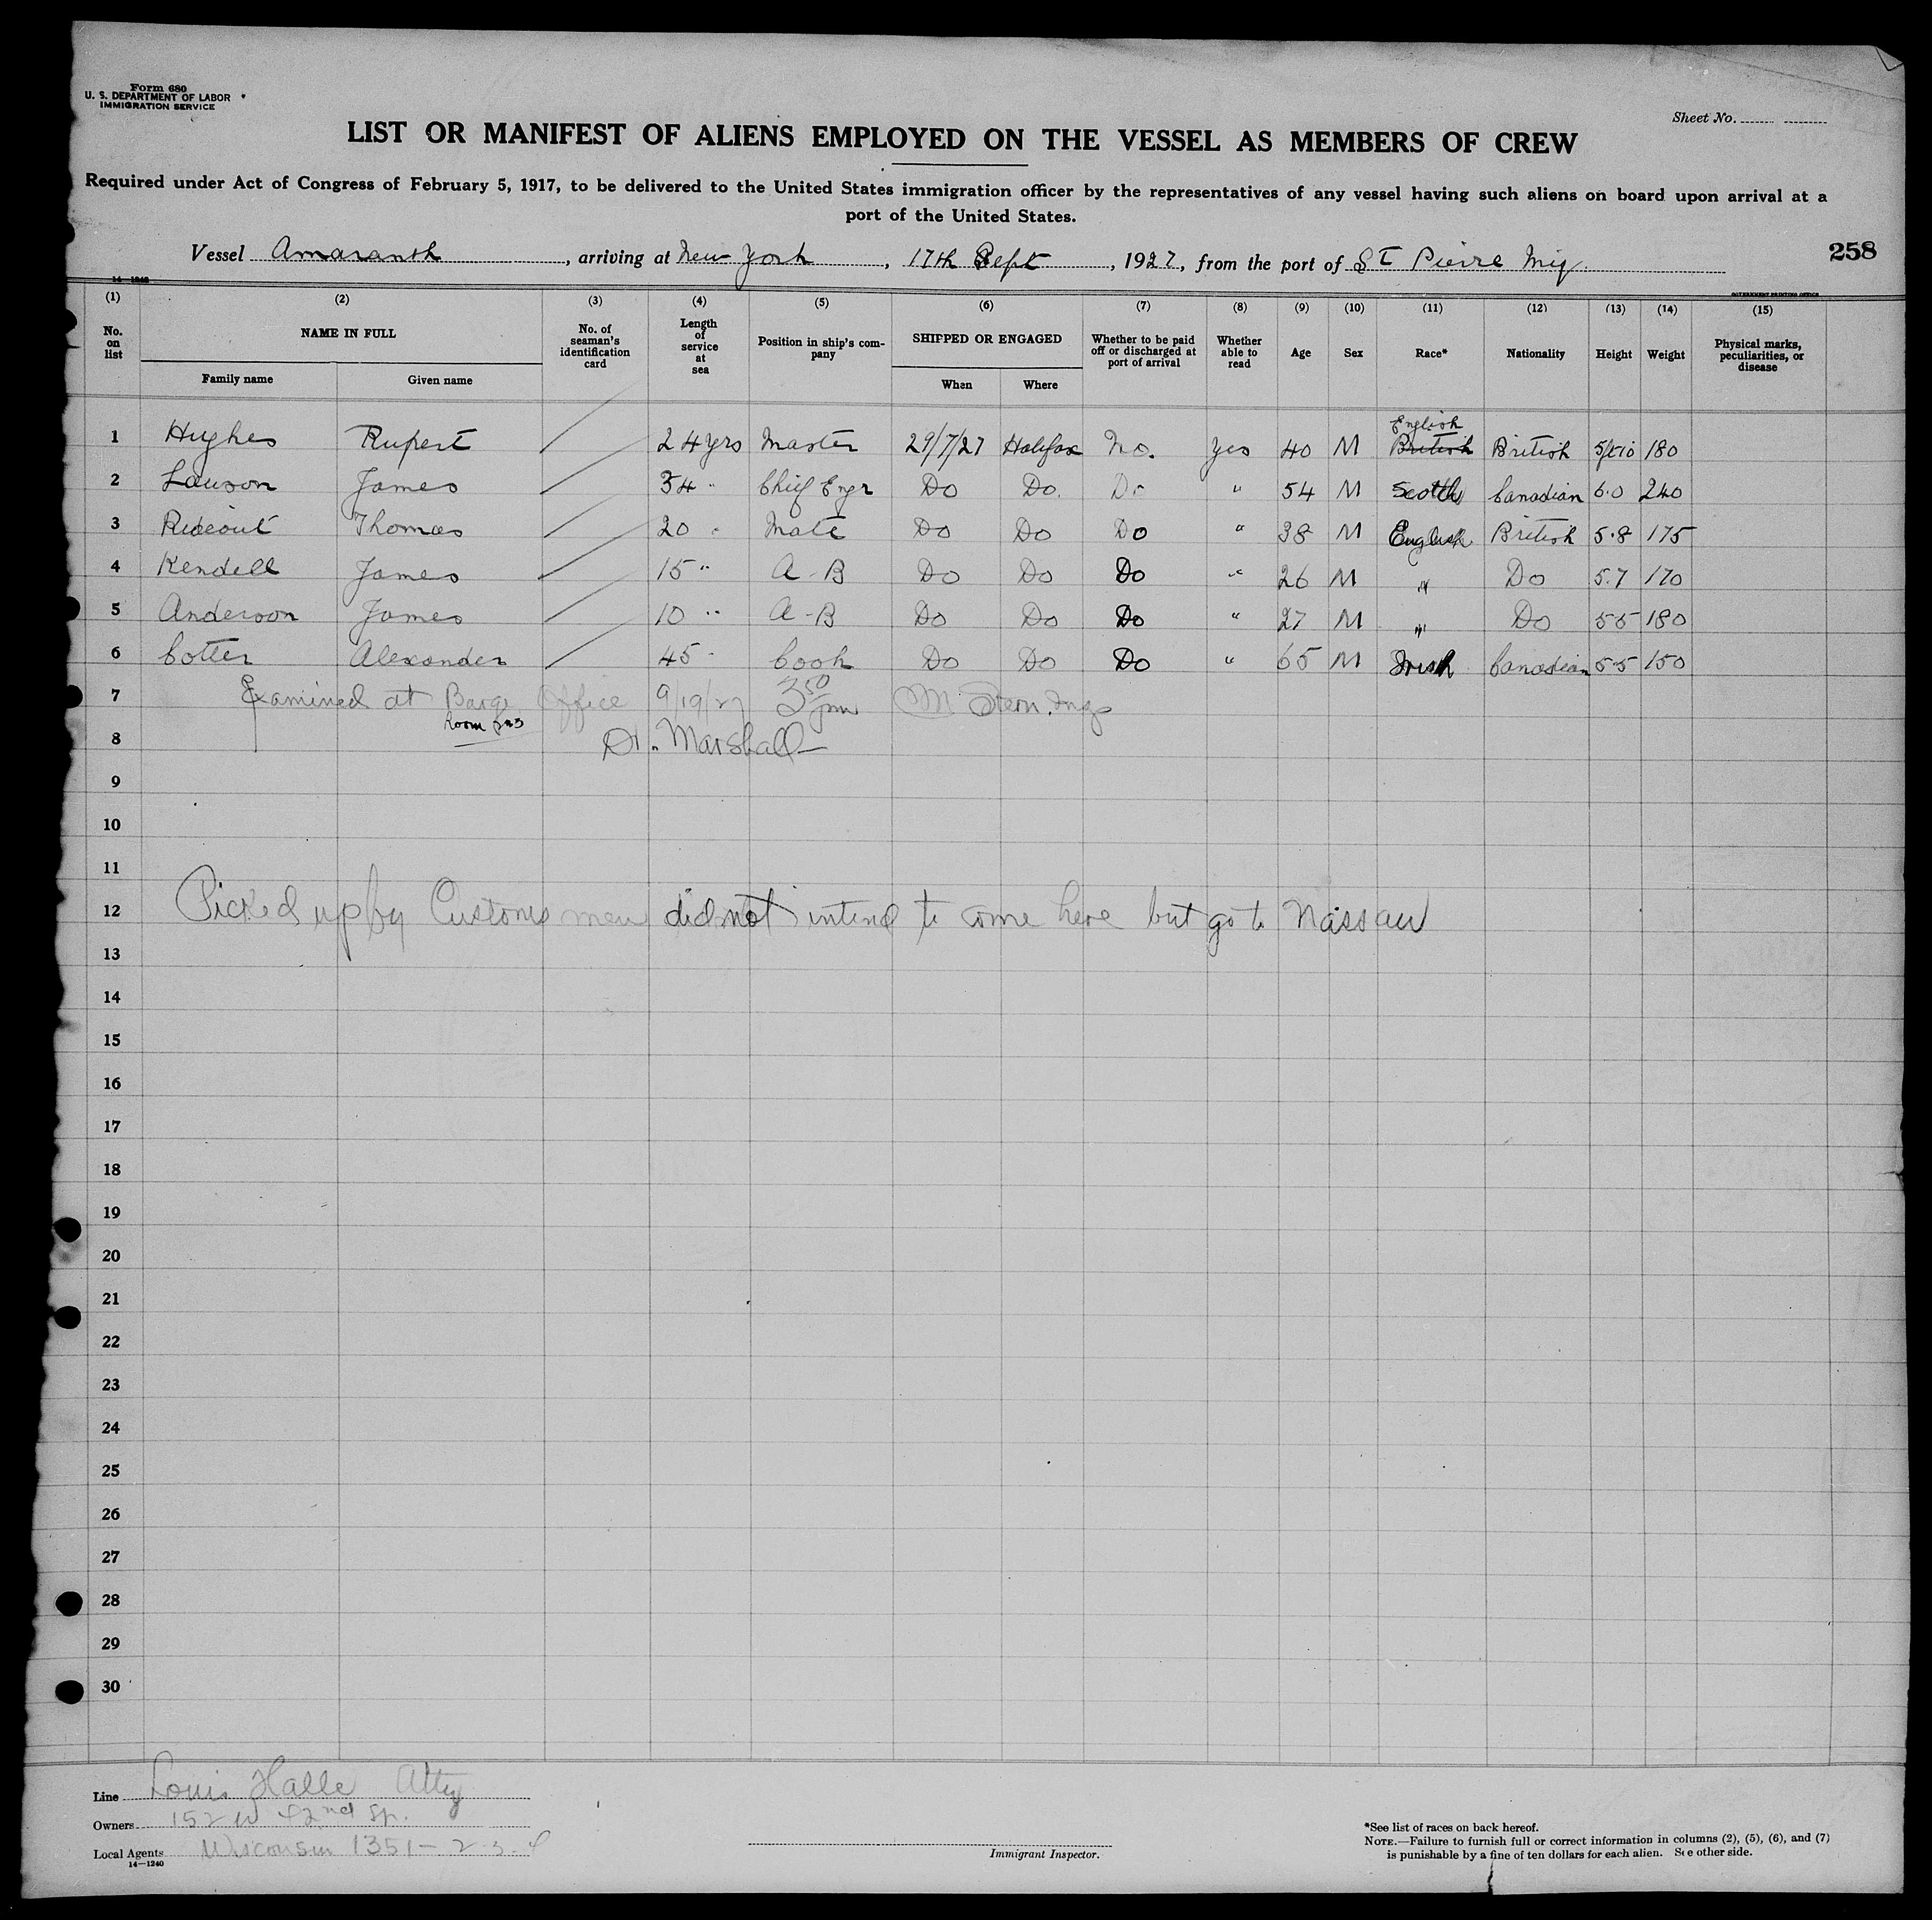 Form 680
U. S. DEPARTMENT OF LABOR
IMMIGRATION SERVICE
Sheet No.
LIST OR MANIFEST OF ALIENS EMPLOYED ON THE VESSEL AS MEMBERS OF CREW
Required under Act of Congress of February 5, 1917, to be delivered to the United States immigration officer by the representatives of any vessel having such aliens on board upon arrival at a
port of the United States.
Vessel Amaranth, arriving at New York, 17th Sept, 1927, from the port of St Pierre Miq. 258
14-1240
GOVERNMENT PRINTING OFFICE
(1) (2) (3) (4) (5) (6) (7) (8) (9) (10) (11) (12) (13) (14) (15)
No. on list NAME IN FULL Family name Given name No. of seaman's identification card Length of service at sea Position in ship's company SHIPPED OR ENGAGED When Where Whether to be paid off or discharged at port of arrival Whether able to read Age Sex Race* Nationality Height Weight Physical marks, peculiarities, or disease
English
1 Hughes Rupert 24 yrs Master 29/7/27 Halifax No. Yes 40 M British British 5ft10 180
2 Lawson James 34 " Chief Engr Do Do. Do " 54 M Scotch Canadian 6.0 240
3 Rideout Thomas 20 " Mate Do Do Do " 38 M English British 5.8 175
4 Kendell James 15 " A-B Do Do Do " 26 M " Do 5.7 170
5 Anderson James 10 " A-B Do Do Do " 27 M " Do 5 5 180
6 Cotter Alexander 45 " Cook Do Do Do " 65 M Irish Canadian 5-5 150
7 Examined at Barge Office 9/19/27 3 50 pm M Stern. Insp
Room
8 Dr. Marshall
9
10
11
12 Picked up by Customs men did not intend to come here but go to Nassau
13
14
15
16
17
18
19
20
21
22
23
24
25
26
27
28
29
30
Line Louis Halle Atty
Owners 152 W 42nd St.
Local Agents Wisconsin 1351-2-3-4
14-1240
Immigrant Inspector.
*See list of races on back hereof.
NOTE.—Failure to furnish full or correct information in columns (2), (5), (6), and (7)
is punishable by a fine of ten dollars for each alien. See other side.